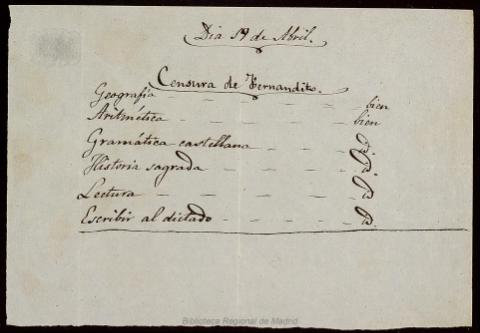 Dia 19 de Abril.
Censura de Fernandito.
Geografía - - - - - bien
Aritmética - - - - - bien
Gramática castellana - - - -
Historia sagrada - - - - -
Lectura - - - - - -
Escribir al dictado - - - - -
Biblioteca Regional de Madrid